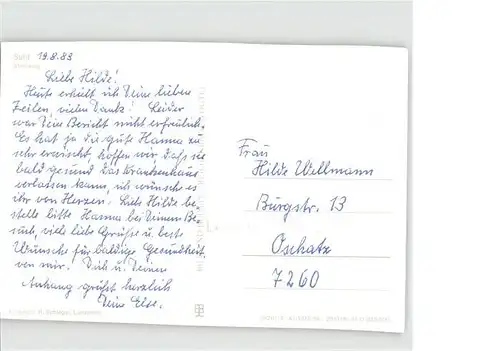 Suhl 19.8.83
Liebe Hilde!
Heute erhielt ich Deine lieben
Zeilen, vielen Dank! Leider
war Dein Bericht nicht erfreulich.
Es hat ja die gute Hanna zu
sehr erwischt, hoffen wir, daß sie
bald gesund das Krankenhaus
verlassen kann, ich wünsche es
ihr von Herzen. Liebe Hilde be-
stelle bitte Hanna bei Deinem Be-
such, viele liebe Grüße u. beste
Wünsche für baldige Gesundheit
von mir. Dich u. Deinen
Anhang grüßt herzlich
Deine Else.
Frau
Hilde Wellmann
Burgstr. 13
Oschatz
7260